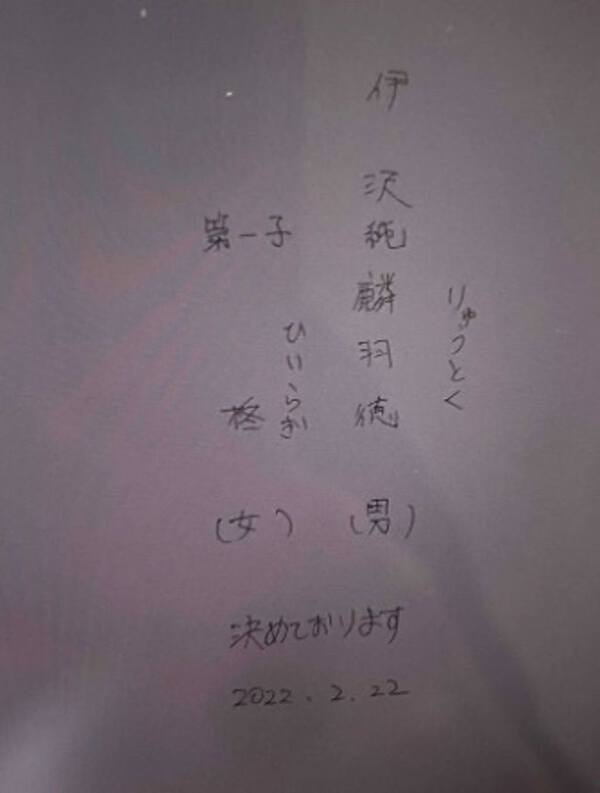 りゅうとく
伊沢純麟羽徳
(男)
ひいらぎ
第一子
柊
(女)
決めております
2022.2.22